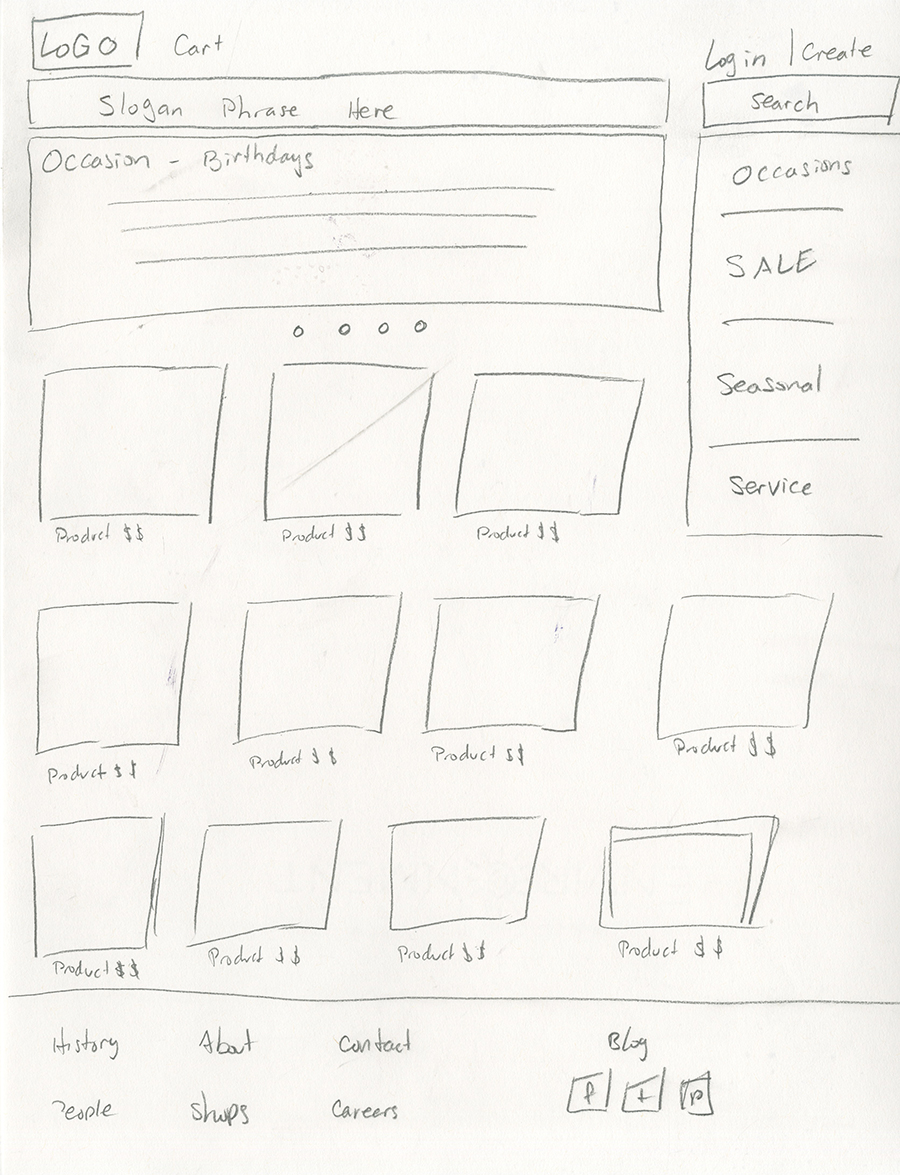 LOGO Cart
Login | Create
Slogan Phrase Here
Search
Occasion - Birthdays
Occasions
SALE
Seasonal
Service
Product $$ Product $$ Product $$
Product $$ Product $$ Product $$ Product $$
Product $$ Product $$ Product $$ Product $$
History About Contact Blog
People Shops Careers f t p